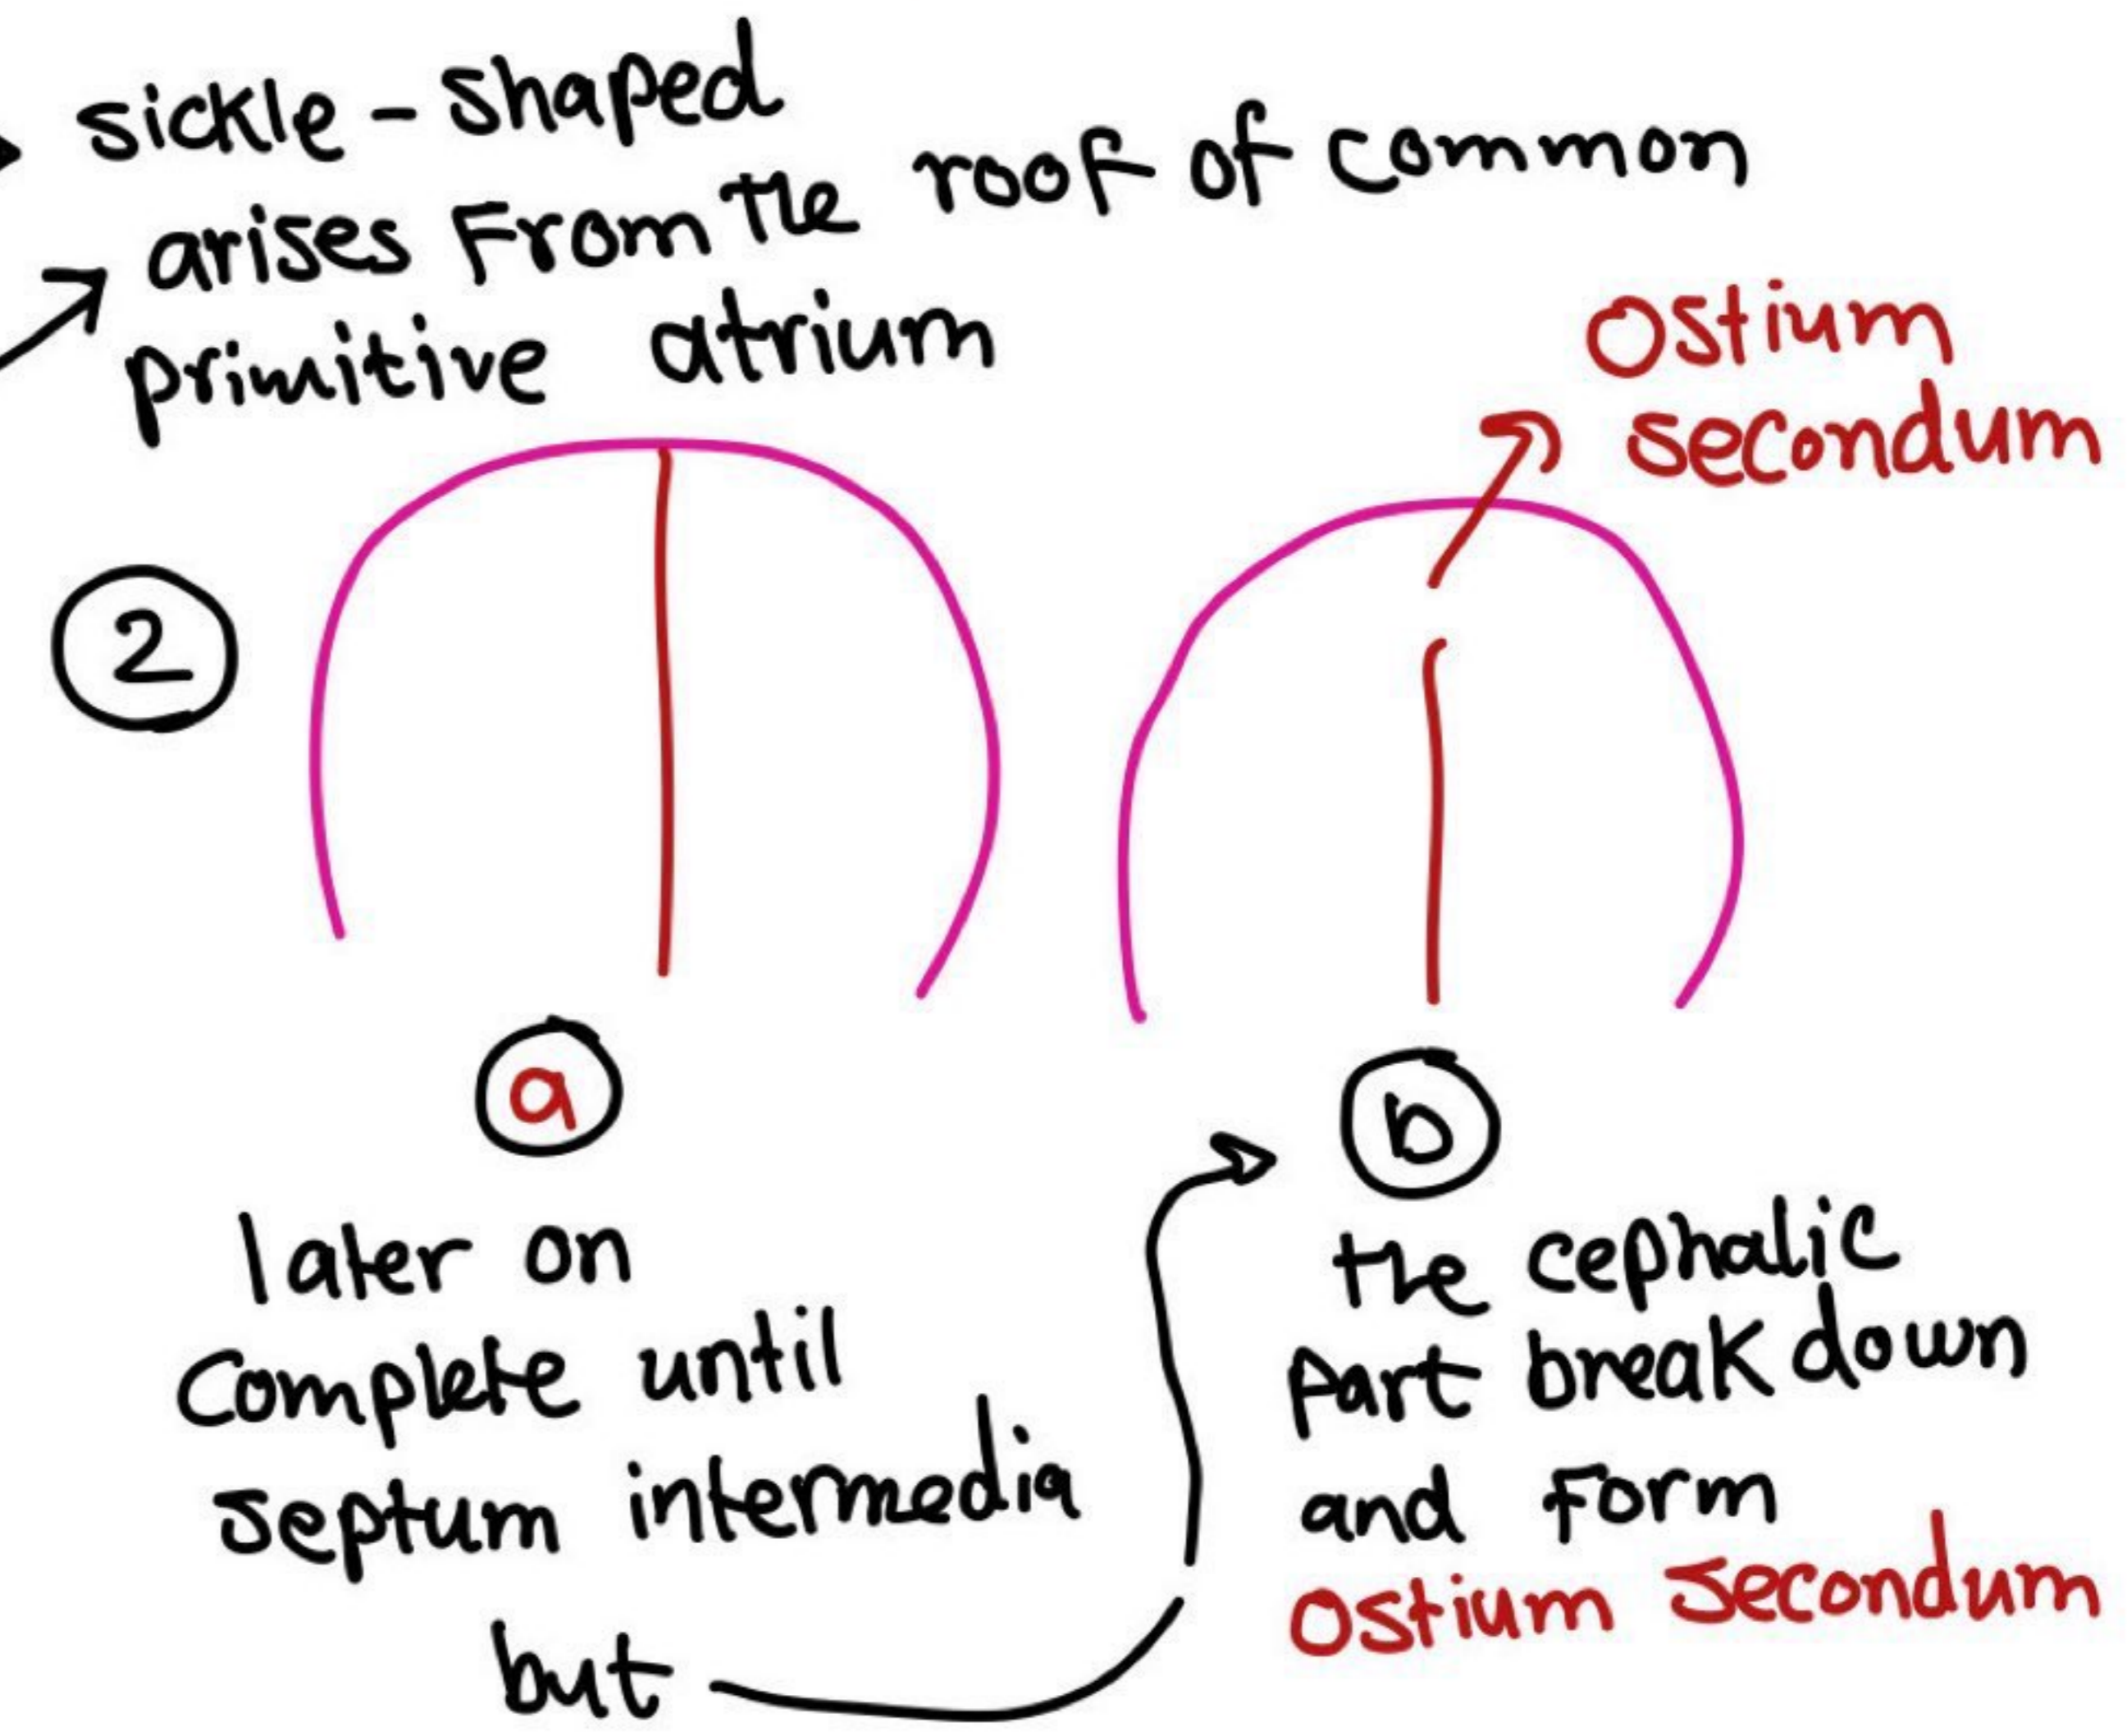 sickle-shaped
arises From the roof of common
primitive atrium
Ostium
secondum
2
a
b
later on
Complete until
septum intermedia
but
the cephalic
Part break down
and Form
Ostium Secondum